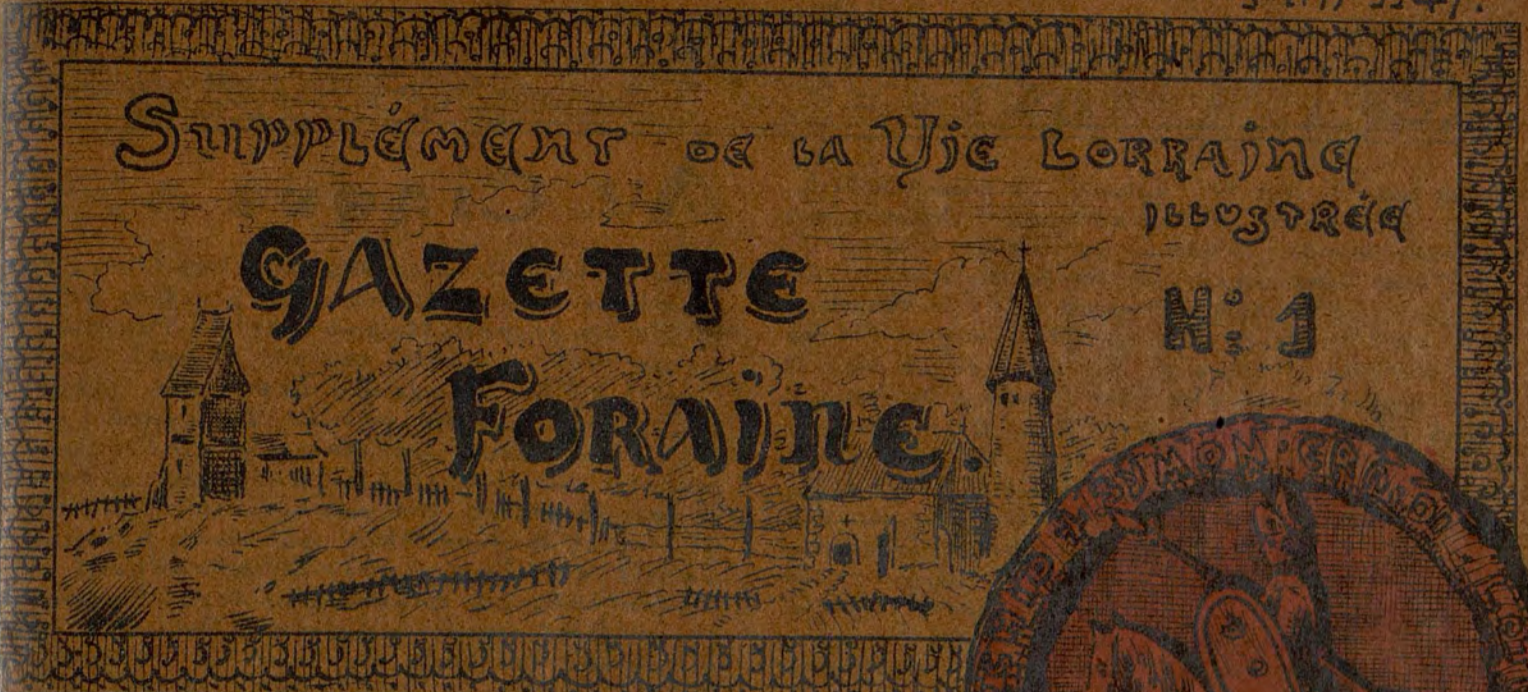 Supplément de la Vie Lorraine
illustrée
Gazette
N° 1
Foraine.